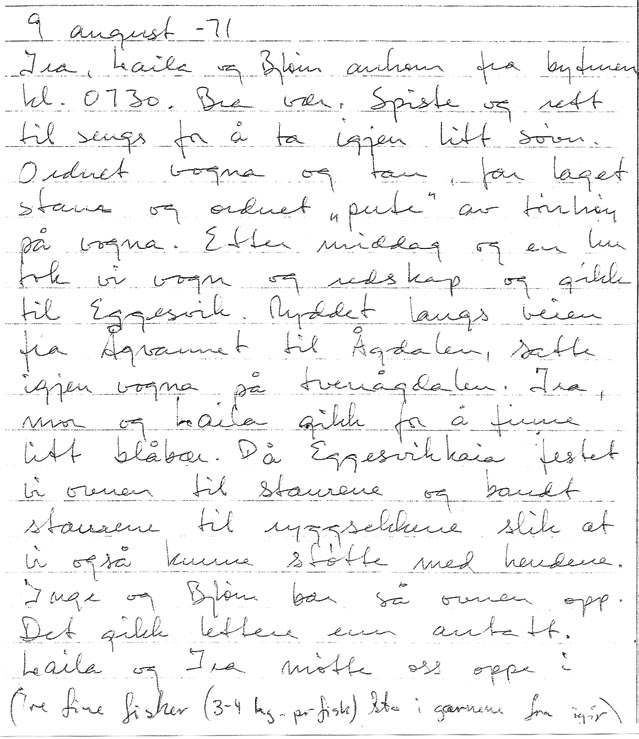 9 august -71
Iva, Laila og Bjørn ankom fra byturen
kl. 0730. Bra vær. Spiste og rett
til sengs for å ta igjen litt søvn.
Ordnet vogna og tau, far laget
staur og ordnet "pute" av tørrhøy
på vogna. Etter middag og en lur
tok vi vogn og redskap og gikk
til Eggesvik. Ryddet langs veien
fra Ågvannet til Ågdalen, satte
igjen vogna på tverrågdalen. Iva,
mor og Laila gikk for å finne
litt blåbær. På Eggesvikkaia festet
vi ovnen til staurene og bandt
staurene til ryggsekkene slik at
vi også kunne støtte med hendene.
Inge og Bjørn bar så ovnen opp.
Det gikk lettere enn antatt.
Laila og Iva møtte oss oppe i
(Tre fine fisker (3-4 kg. pr fisk) sto i garnene fra igår)